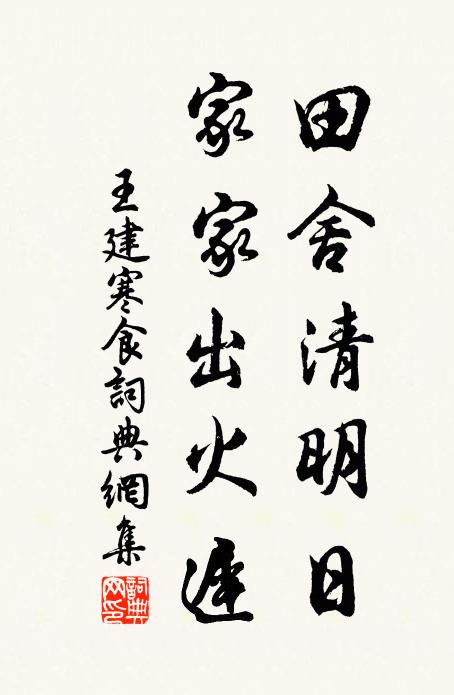 田舍清明日
家家出火遲
王建寒食詞典網集
詞典網印